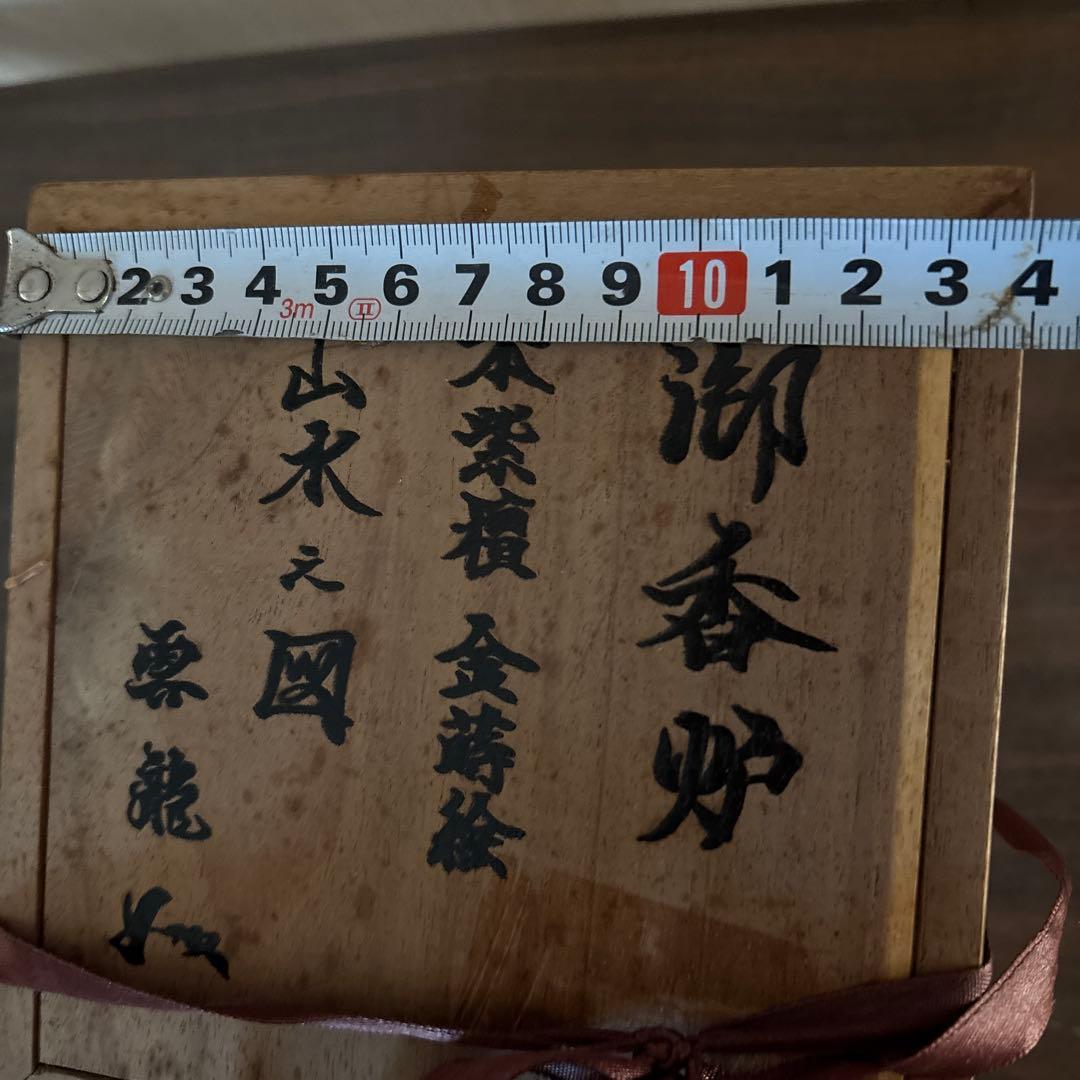 2 3 4 5 6 7 8 9 10 1 2 3 4
3m
御香炉
本紫檀金蒔絵
山水之図
雲龍